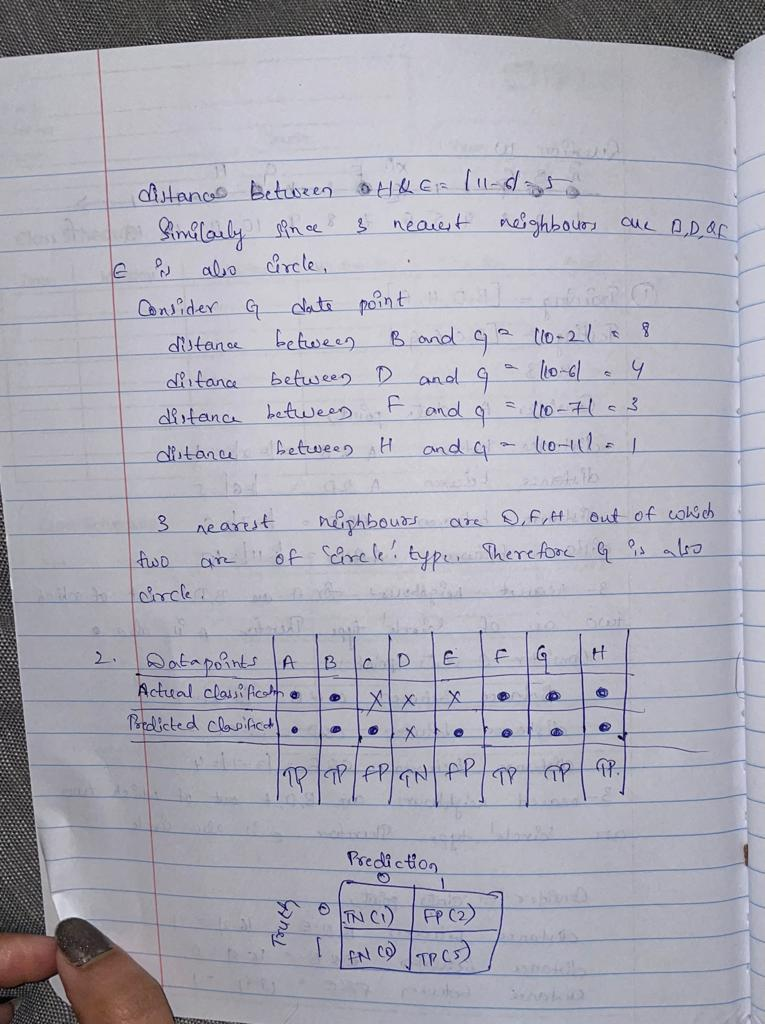 distance between H & E = |11-6| = 5
Similarly since 3 nearest neighbours are B, D, & F
E is also circle.
Consider G data point
distance between B and G = |10-2| = 8
distance between D and G = |10-6| = 4
distance between F and G = |10-7| = 3
distance between H and G = |10-11| = 1
3 nearest neighbours are D, F, H out of which
two are of 'circle' type. Therefore G is also
circle.
2. Datapoints A B C D E F G H
Actual classification • • X X X • • •
Predicted classificat • • • X • • • •
TP TP FP TN FP TP TP TP.
Prediction
0 1
Truth 0 TN(1) FP(2)
1 FN(0) TP(5)